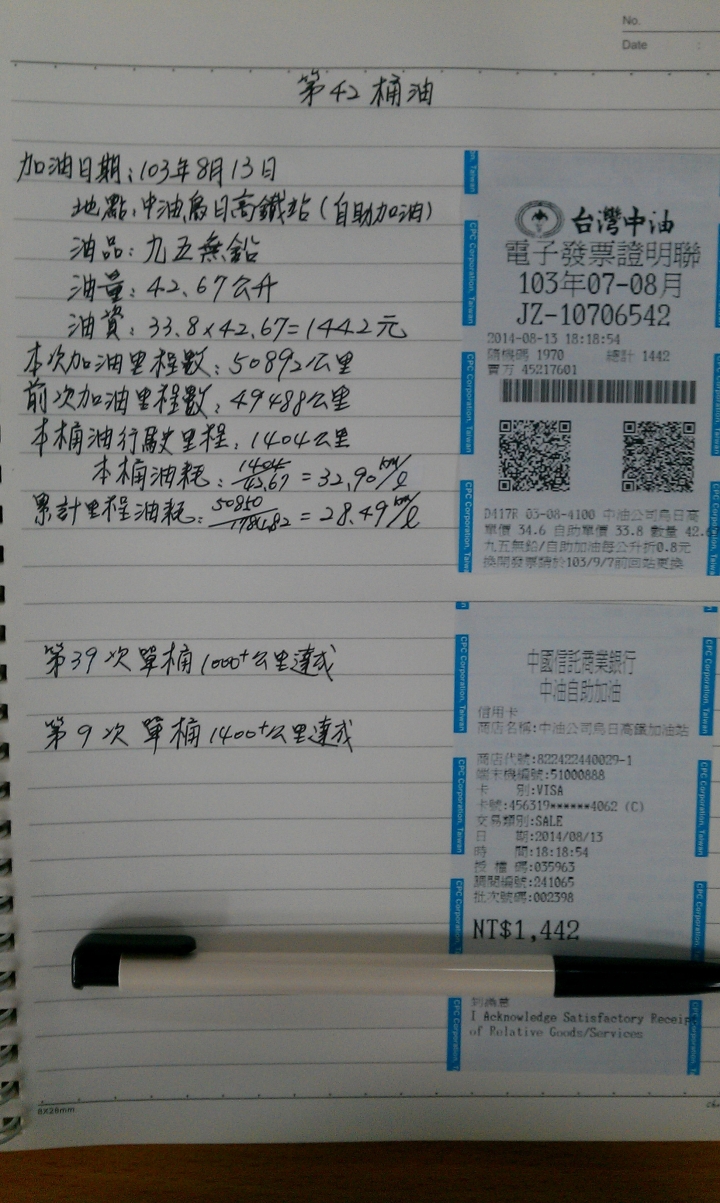 No.
Date :
第42桶油
加油日期:103年8月13日
地點:中油烏日高鐵站(自助加油)
油品:九五無鉛
油量:42.67公升
油資:33.8×42.67=1442元
本次加油里程數:50892公里
前次加油里程數:49488公里
本桶油行駛里程:1404公里
本桶油耗:1404/42.67=32.90km/ℓ
累計里程油耗:50850/1784.82=28.49km/ℓ
第39次單桶1000+公里達成
第9次單桶1400+公里達成
台灣中油
電子發票證明聯
103年07-08月
JZ-10706542
2014-08-13 18:18:54
隨機碼 1970 總計 1442
賣方 45217601
D417F 03-08-4100 中油公司烏日高
單價 34.6 自助單價 33.8 數量 42.
九五無鉛/自助加油每公升折0.8元
換開發票請於103/9/7前回站更換
中國信託商業銀行
中油自助加油
信用卡
商店名稱:中油公司烏日高鐵加油站
商店代號:822422440029-1
端末機編號:51000888
卡 別:VISA
卡號:456319******4062 (C)
交易類別:SALE
日 期:2014/08/13
時 間:18:18:54
授 權 碼:035963
調閱編號:241065
批次號碼:002398
NT$1,442
I Acknowledge Satisfactory Receip
of Relative Goods/Services
CPC Corporation, Taiwan
8X26mm